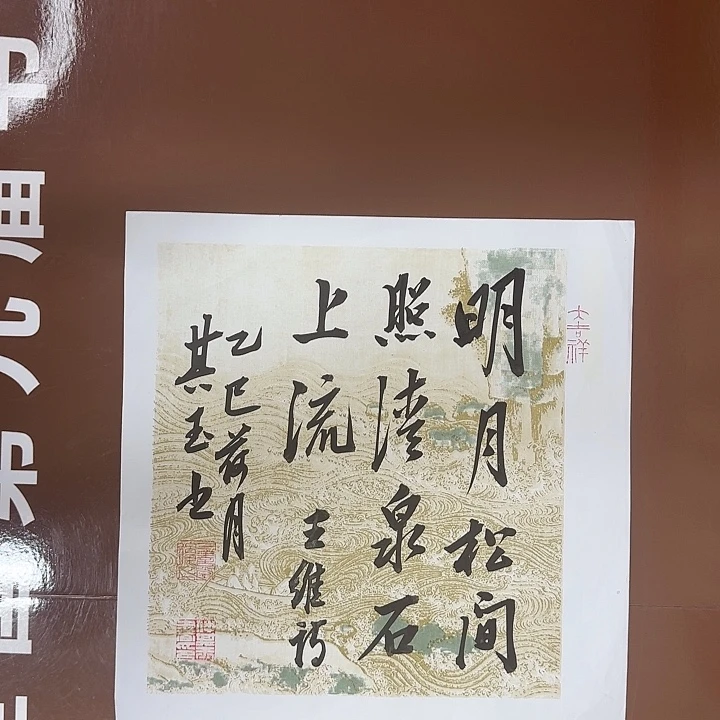 明月松间
照清泉石
上流 王维诗
乙巳荷月
其玉书
大吉祥